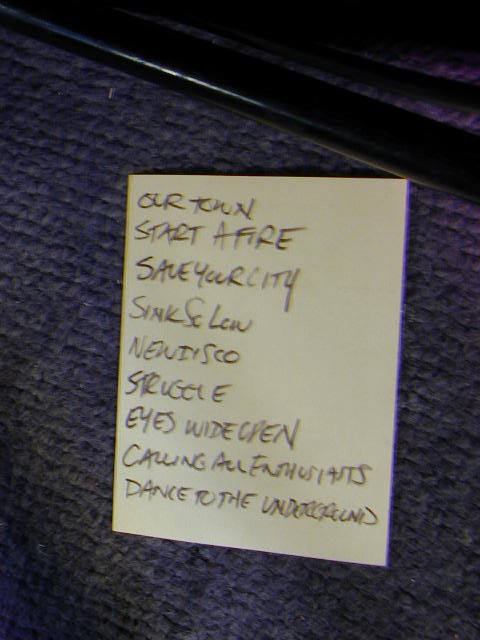 OUR TOWN
START A FIRE
SAVE YOUR CITY
SINK SO LOW
NEW DISCO
STRUGGLE
EYES WIDE OPEN
CALLING ALL ENTHUSIASTS
DANCE TO THE UNDERGROUND